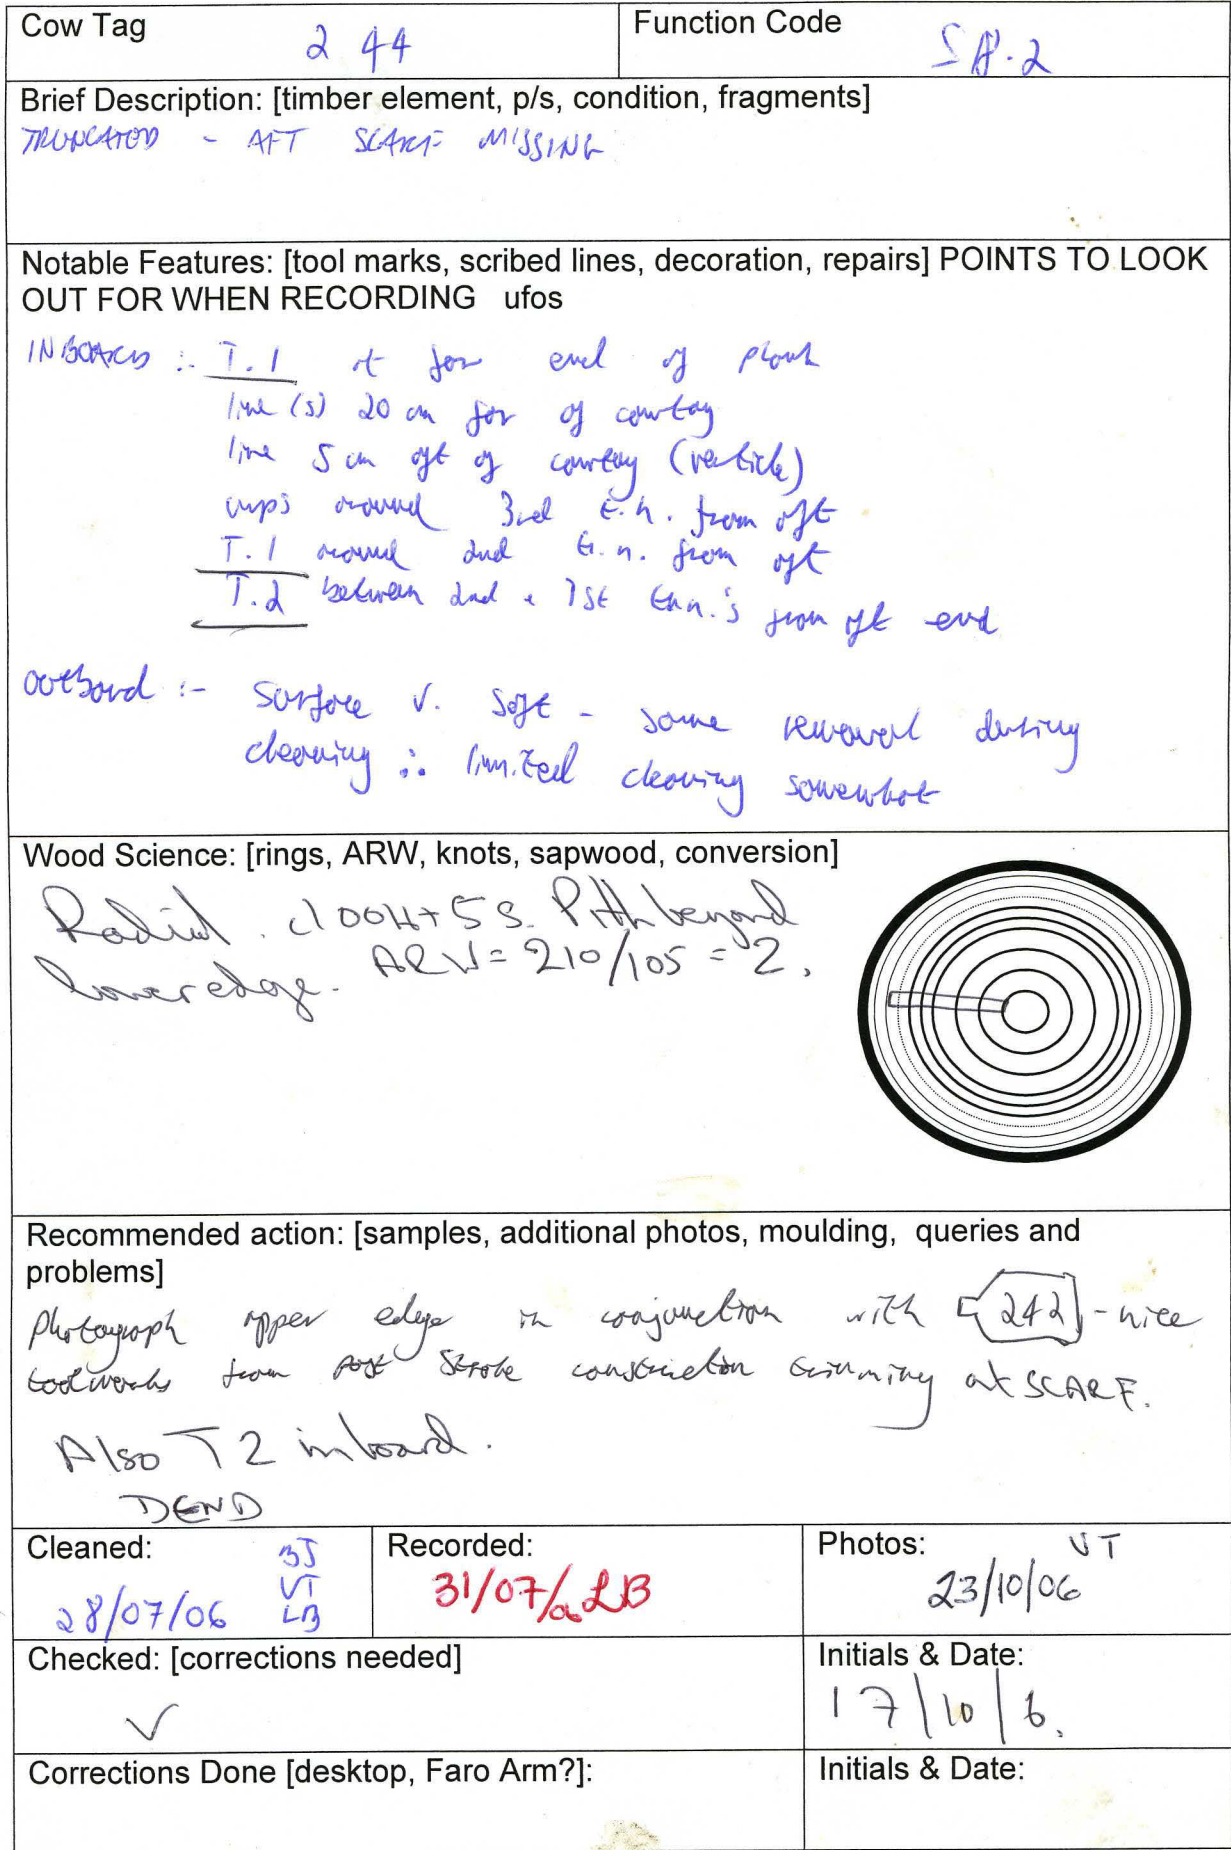 Cow Tag 2 44
Function Code SP.2
Brief Description: [timber element, p/s, condition, fragments]
TRUNCATED - AFT SCARF MISSING
Notable Features: [tool marks, scribed lines, decoration, repairs] POINTS TO LOOK
OUT FOR WHEN RECORDING ufos
INBOARD :- T.1 at for end of plank
line (s) 20 cm for of cowtag
line 5 cm aft of cowtag (verticle)
around 3rd t.n. from aft
T.1 around 2nd t.n. from aft
T.2 between 2nd & 1st t.n.'s from aft end
outboard :- surface v. soft - some removal during
cleaning ∴ limited cleaning somewhat
Wood Science: [rings, ARW, knots, sapwood, conversion]
Radial. c100H+5S. Pith beyond
lower edge. ARW = 210/105 = 2.
Recommended action: [samples, additional photos, moulding, queries and
problems]
Photograph upper edge in conjunction with 242 - nice
toolmarks from post strake construction trimming at SCARF.
Also T2 inboard.
DEND
Cleaned: BJ
VT
28/07/06 LB
Recorded:
31/07/06 LB
Photos: VT
23/10/06
Checked: [corrections needed]
✓
Initials & Date:
17/10/6.
Corrections Done [desktop, Faro Arm?]:
Initials & Date: